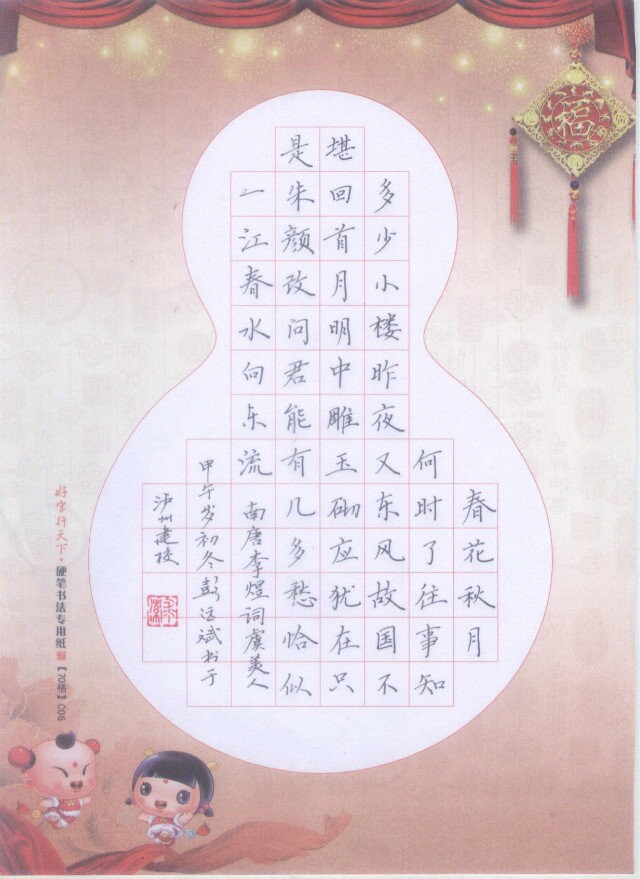 福
春花秋月
何时了往事知
多少小楼昨夜又东风故国不
堪回首月明中雕玉砌应犹在只
是朱颜改问君能有几多愁恰似
一江春水向东流 南唐李煜词虞美人
甲午岁初冬彭斌书于
泸州建校
好字行天下·硬笔书法专用纸【70格】006